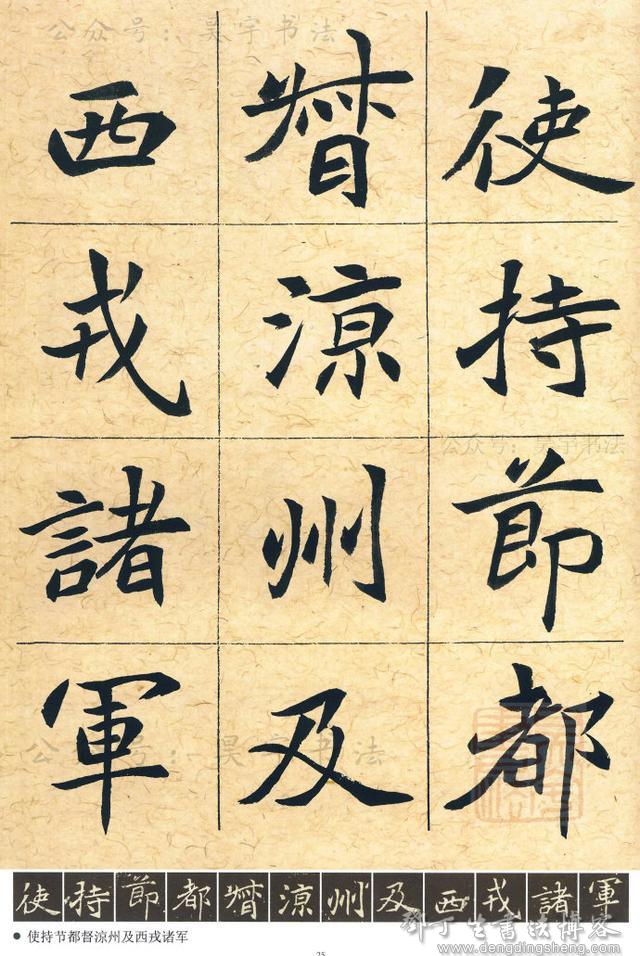 公众号：昊宇书法
使持節都
督涼州及
西戎諸軍
公众号：昊宇书法
公众号：昊宇书法
使持節都督涼州及西戎諸軍
● 使持节都督凉州及西戎诸军
邓丁生书法博客
www.dengdingsheng.com
25